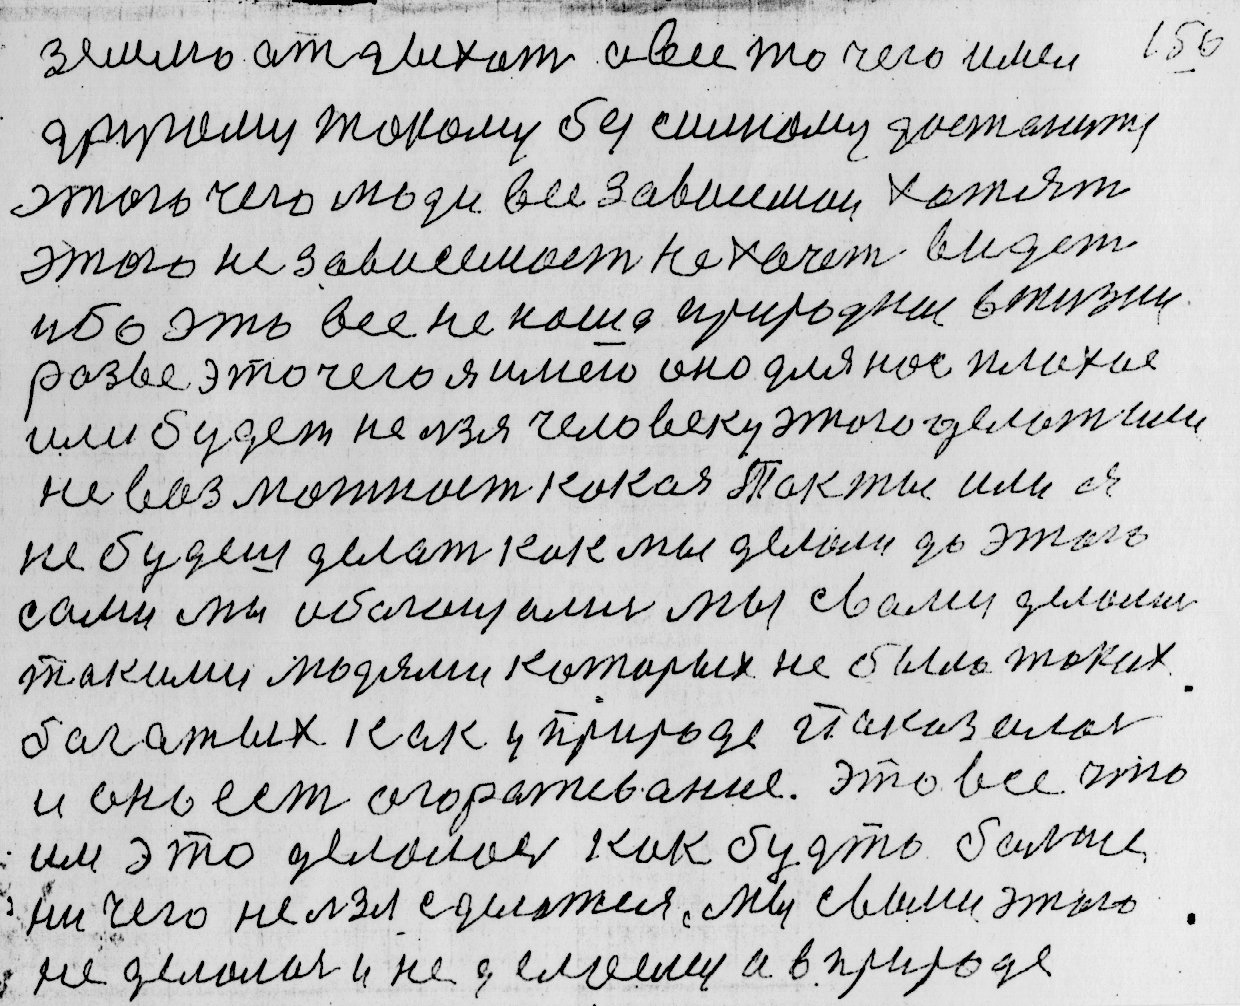 150
землю отдыхат а все то чего имел
другому такому бессилному достанится
этого чего люди все зависимои хотят
этого независемост не хочет видет
ибо это все не наша природнае в жизни
разве это чего я имею оно для нас плохое
или будет нелзя человеку этого делат или
невозможност какая Так ты или я
не будеш делат как мы делали до этого
сами мы обагощалис мы с вами делалис
такими людями которых не было таких
багатых как у природе Паказалас
и оно ест огораживание. Это все что
им это делалос как будто болше
ни чего нелзя сделатся. мы с вами этого
не делали и не делаем а в природе